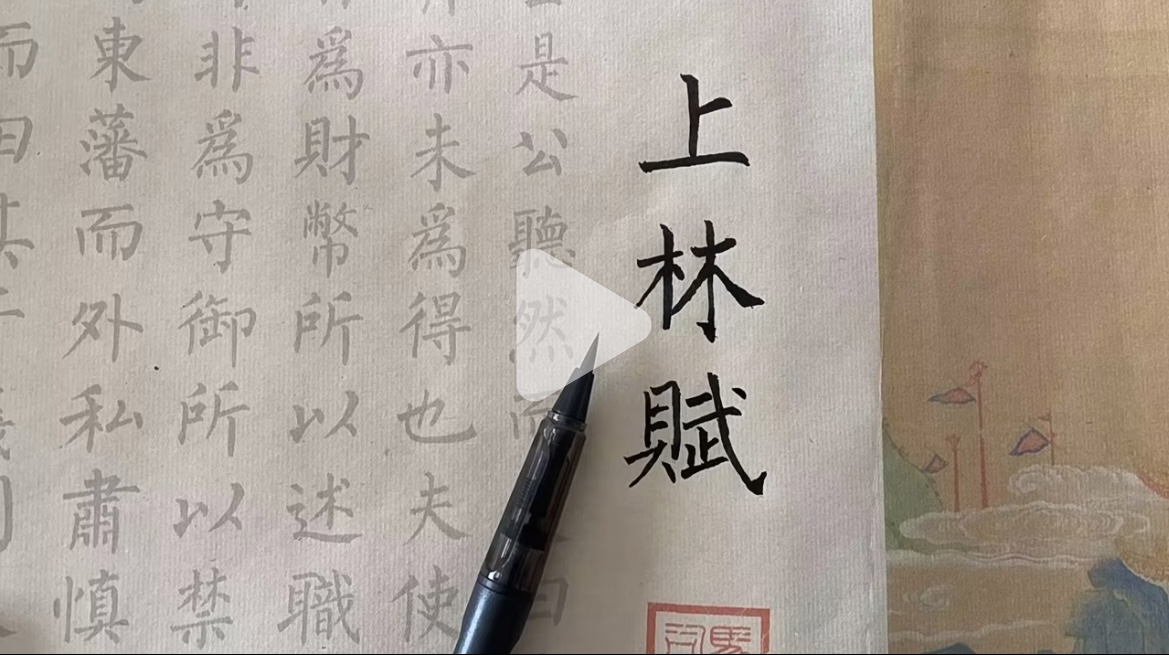 上林賦
是公聽然而
亦未爲得也夫使
爲財幣所以述職
非爲守御所以禁
東藩而外私肅慎
而